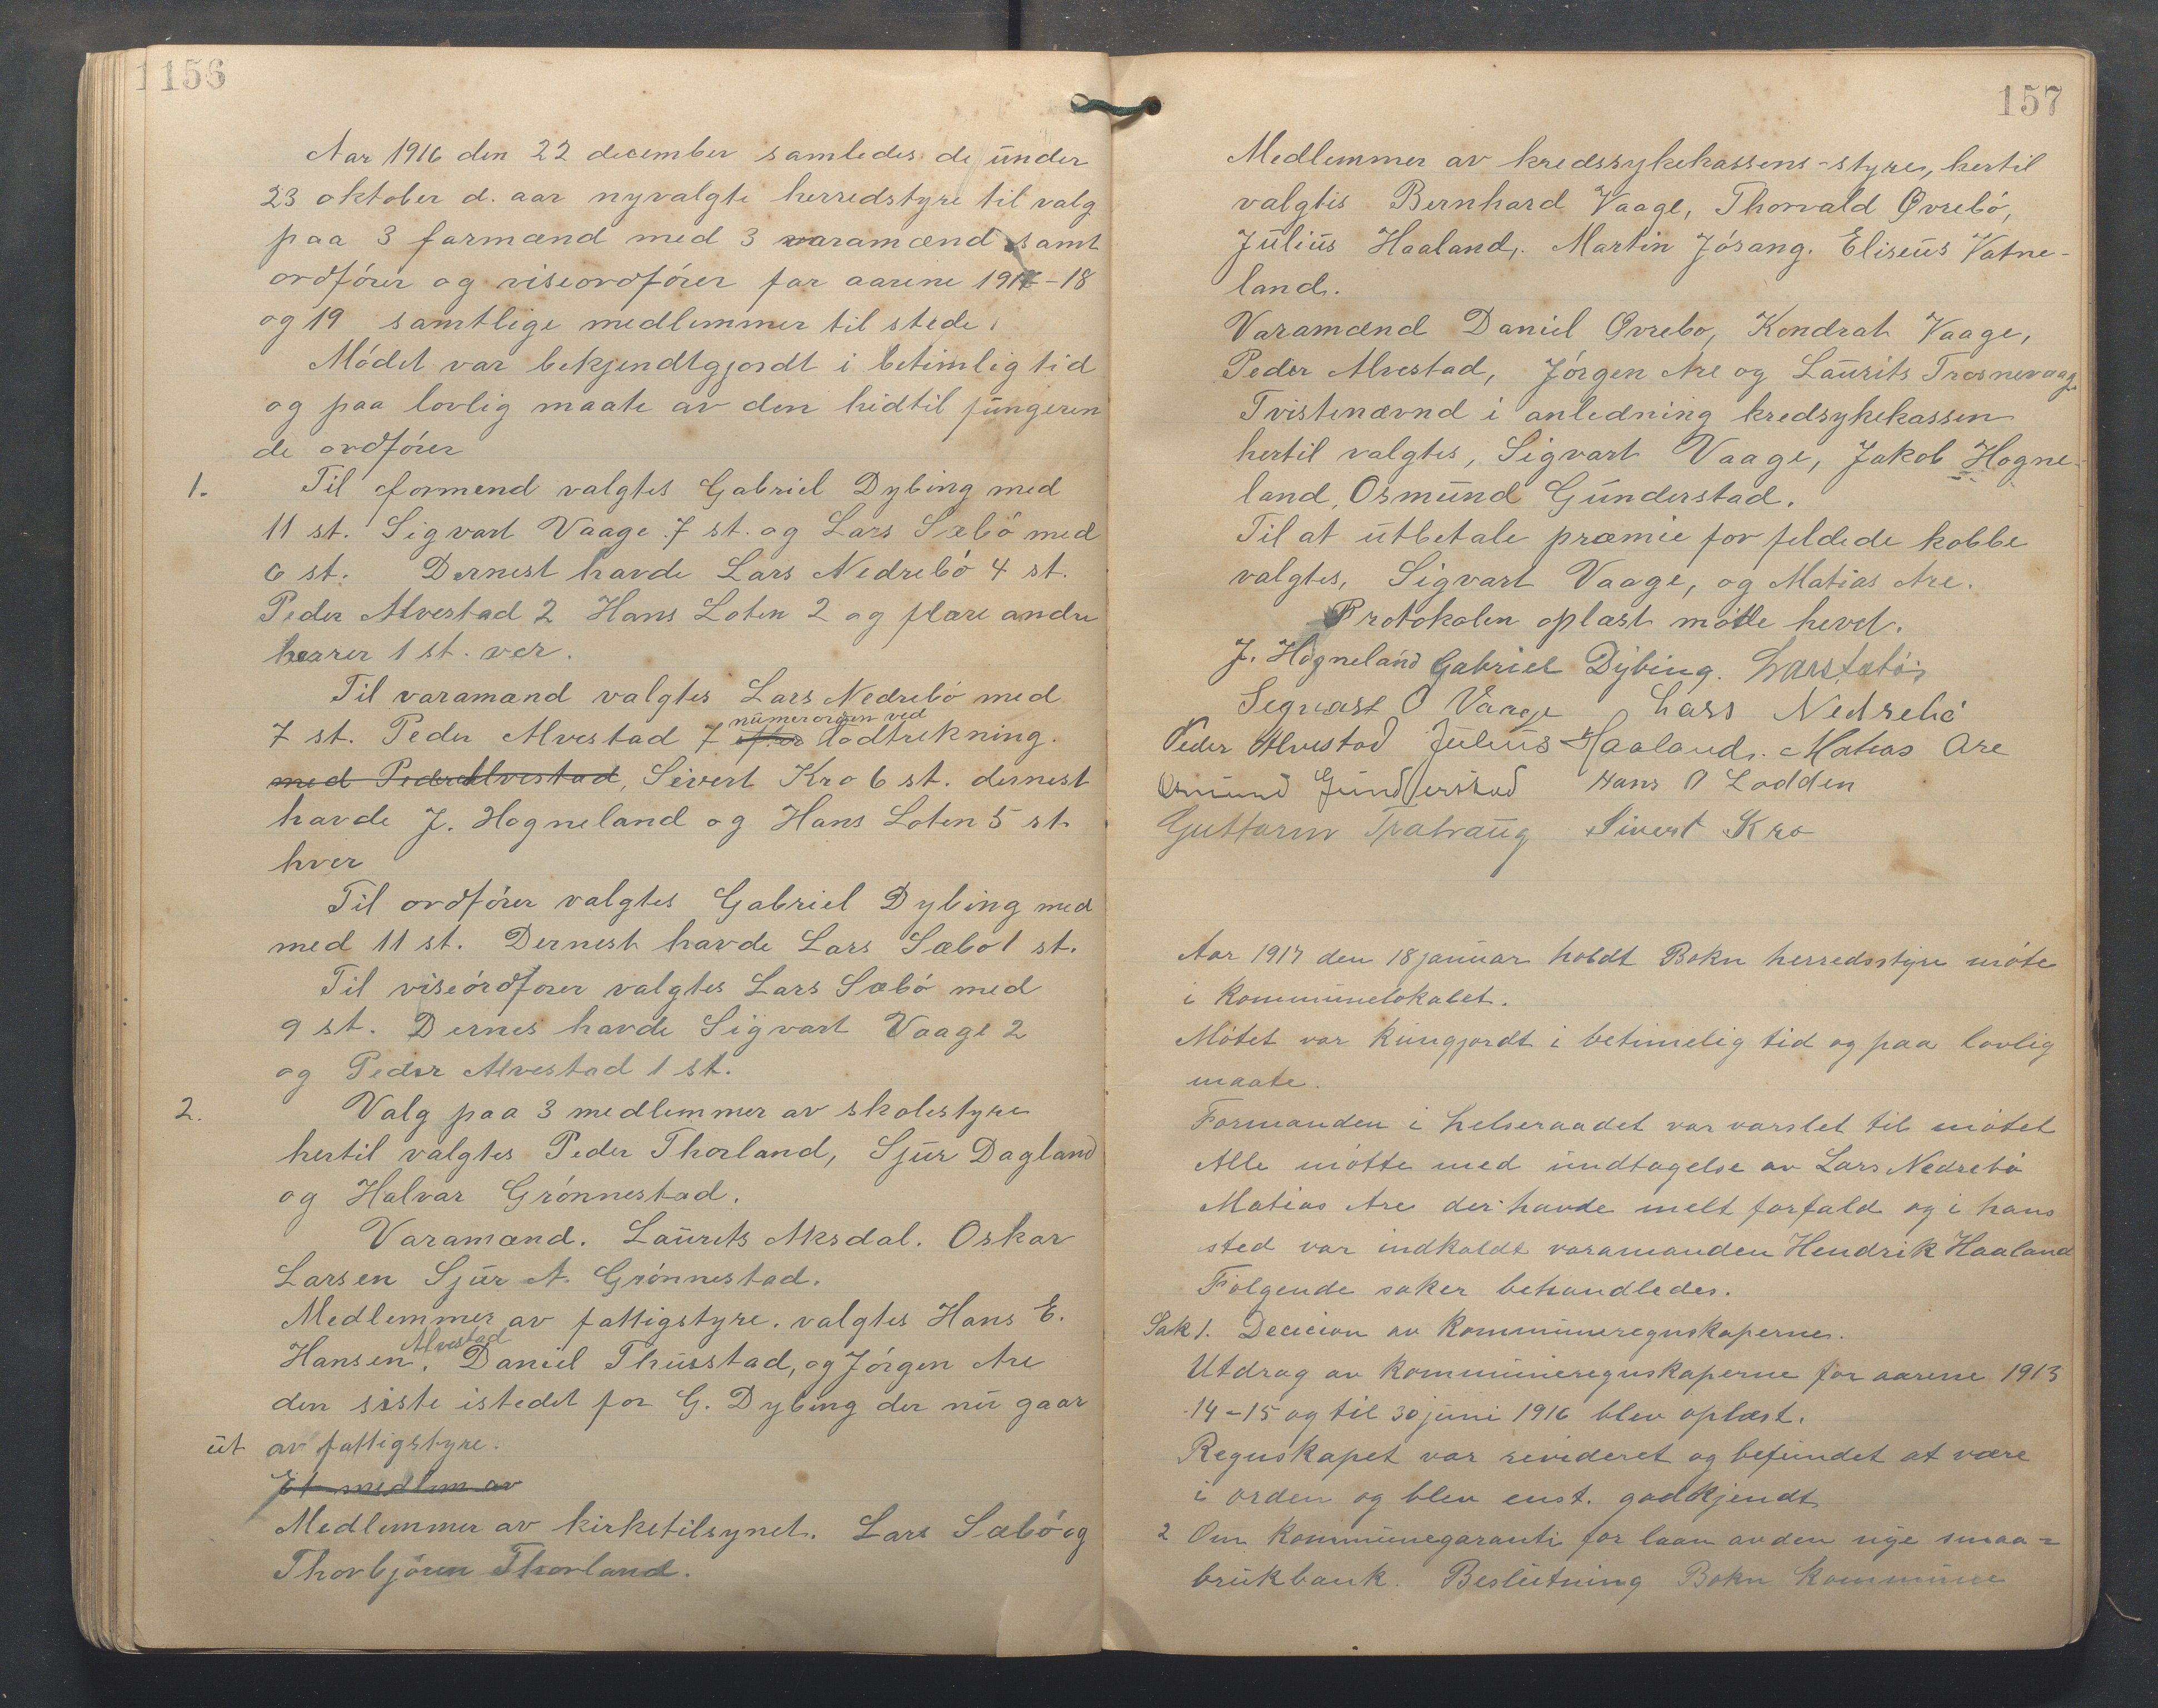 156
Aar 1916 den 22 december samledes de under
23 oktober d. aar nyvalgte herredstyre til valg
paa 3 formænd med 3 varamænd samt
ordfórer og viseordfórer for aarene 1917-18
og 19 samtlige medlemmer til stede.
Módet var bekjendtgjordt i betimlig tid
og paa lovlig maate av den hidtil fungeren
de ordfórer
1. Til formend valgtes Gabriel Dybing med
11 st. Sigvart Vaage 7 st. og Lars Sæbó med
6 st. Dernest havde Lars Nedrebó 4 st.
Peder Alvestad 2 Hans Loten 2 og flære andre
herrer 1 st. ver.
Til varamænd valgtes Lars Nedrebó med
numerorden ved
7 st. Peder Alvestad 7 efter lodtrekning.
med Peder Alvestad, Sivert Kro 6 st. dernest
havde J. Hogneland og Hans Loten 5 st
hver
Til ordfórer valgtes Gabriel Dybing med
med 11 st. Dernest havde Lars Sæbo 1 st.
Til viseórdforer valgtes Lars Sæbó med
9 st. Dernes havde Sigvart Vaage 2
og Peder Alvestad 1 st.
2. Valg paa 3 medlemmer av skolestyre
hertil valgtes Peder Thorland, Sjur Dagland
og Halvar Grónnestad.
Varamænd. Laurits Aksdal. Oskar
Larsen Sjur A. Grónnestad.
Medlemmer av fattigstyre. valgtes Hans E.
Alvestad
Hansen, Daniel Thusstad, og Jórgen Are
den siste istedet for G. Dybing der nu gaar
ut av fattigstyre.
Et medlem av
Medlemmer av kirketilsynet. Lars Sæbó og
Thorbjórn Thorland.
157
Medlemmer av kredssykekassens-styre, hertil
valgtes Bernhard Vaage, Thorvald Øvrebó,
Julius Haaland, Martin Jósang. Eliseus Vatne-
land.
Varamænd Daniel Øvrebo, Kondrat Vaage,
Peder Alvestad, Jórgen Are og Laurits Trosnevaag
Tvistenævnd i anledning kredsykekassen
hertil valgtes, Sigvart Vaage, Jakob Hogne-
land, Osmund Gunderstad.
Til at utbetale præmie for feldede kobbe
valgtes, Sigvart Vaage, og Matias Are.
Protokolen oplæst móte hevet.
J. Hogneland Gabriel Dybing. Lars Sæbó
Segvart O Vaage Lars Nedrebó
Peder Alvestad Julius Haaland. Matias Are
Osmund Gunderstad Hans O Lodden
Guttorm Sivert Kro
Aar 1917 den 18 januar holdt Bokn herredsstyre móte
i kommunelokalet.
Mótet var kungjordt i betimelig tid og paa lovlig
maate.
Formanden i helseraadet var varslet til mótet
Alle mótte med undtagelse av Lars Nedrebó
Matias Are der havde melt forfald og i hans
sted var indkaldt varamanden Hendrik Haaland
Folgende saker behandledes.
Sak 1. Decicion av kommuneregnskaperne.
Utdrag av kommuneregnskaperne for aarene 1913
-14-15 og til 30 juni 1916 blev oplæst.
Regnskapet var revideret og befundet at være
i orden og blev enst. godkjendt
2 Om kommunegaranti for laan av den nye smaa-
brukbank. Beslutning Bokn kommune